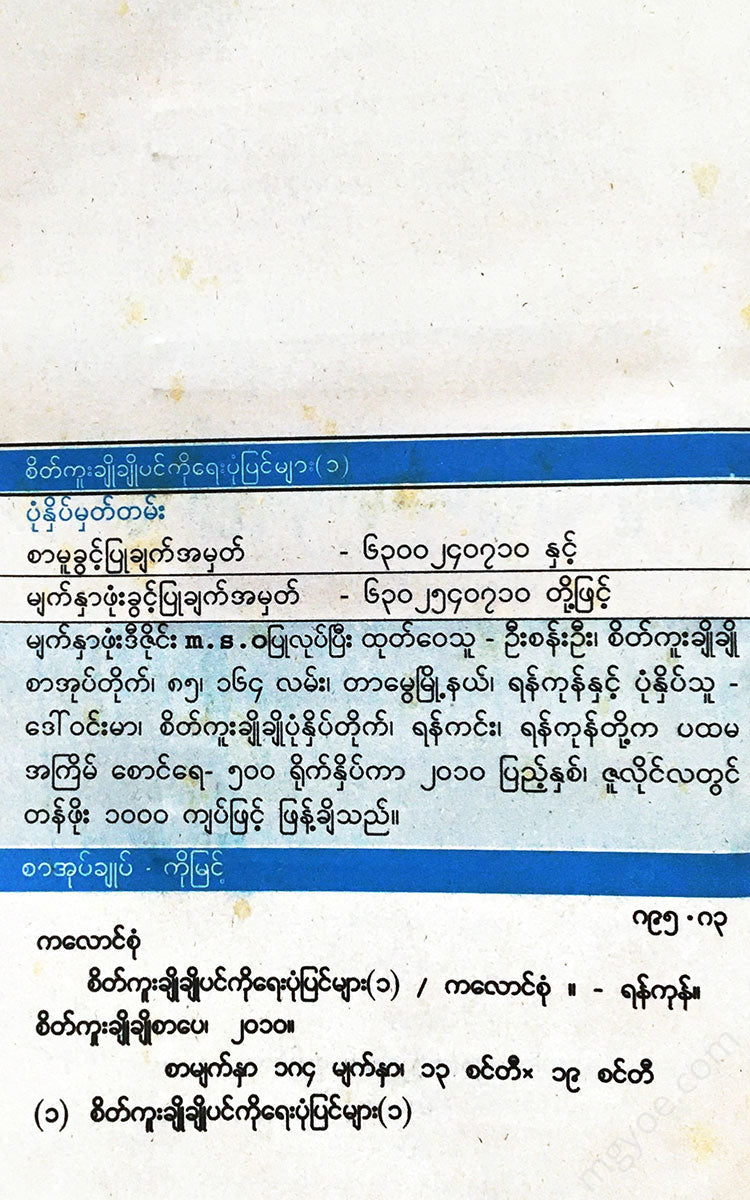 စိတ်ကူးချိုချိုပင်ကိုရေးပုံပြင်များ(၁)
ပုံနှိပ်မှတ်တမ်း
စာမူခွင့်ပြုချက်အမှတ် - ၆၃၀၀၂၄၀၇၁၀ နှင့်
မျက်နှာဖုံးခွင့်ပြုချက်အမှတ် - ၆၃၀၂၅၄၀၇၁၀ တို့ဖြင့်
မျက်နှာဖုံးဒီဇိုင်း m.s.oပြုလုပ်ပြီး ထုတ်ဝေသူ - ဦးစန်းဦး၊ စိတ်ကူးချိုချို
စာအုပ်တိုက်၊ ၈၅၊ ၁၆၄ လမ်း၊ တာမွေမြို့နယ်၊ ရန်ကုန်နှင့် ပုံနှိပ်သူ -
ဒေါ်ဝင်းမာ၊ စိတ်ကူးချိုချိုပုံနှိပ်တိုက်၊ ရန်ကင်း၊ ရန်ကုန်တို့က ပထမ
အကြိမ် စောင်ရေ- ၅၀၀ ရိုက်နှိပ်ကာ ၂၀၁၀ ပြည့်နှစ်၊ ဇူလိုင်လတွင်
တန်ဖိုး ၁၀၀၀ ကျပ်ဖြင့် ဖြန့်ချိသည်။
စာအုပ်ချုပ် - ကိုမြင့်
၈၉၅.၈၃
ကလောင်စုံ
စိတ်ကူးချိုချိုပင်ကိုရေးပုံပြင်များ(၁) / ကလောင်စုံ ။ - ရန်ကုန်။
စိတ်ကူးချိုချိုစာပေ၊ ၂၀၁၀။
စာမျက်နှာ ၁၈၄ မျက်နှာ၊ ၁၃ စင်တီ× ၁၉ စင်တီ
(၁) စိတ်ကူးချိုချိုပင်ကိုရေးပုံပြင်များ(၁)
mgyoe.com